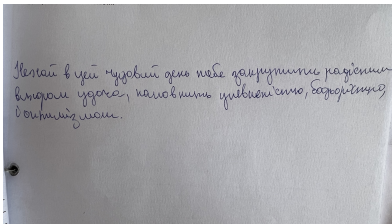 Нехай в цей чудовий день тебе закрутить радісним
вихром удача, наповнить упевненістю, бадьорістю,
і оптимізмом.